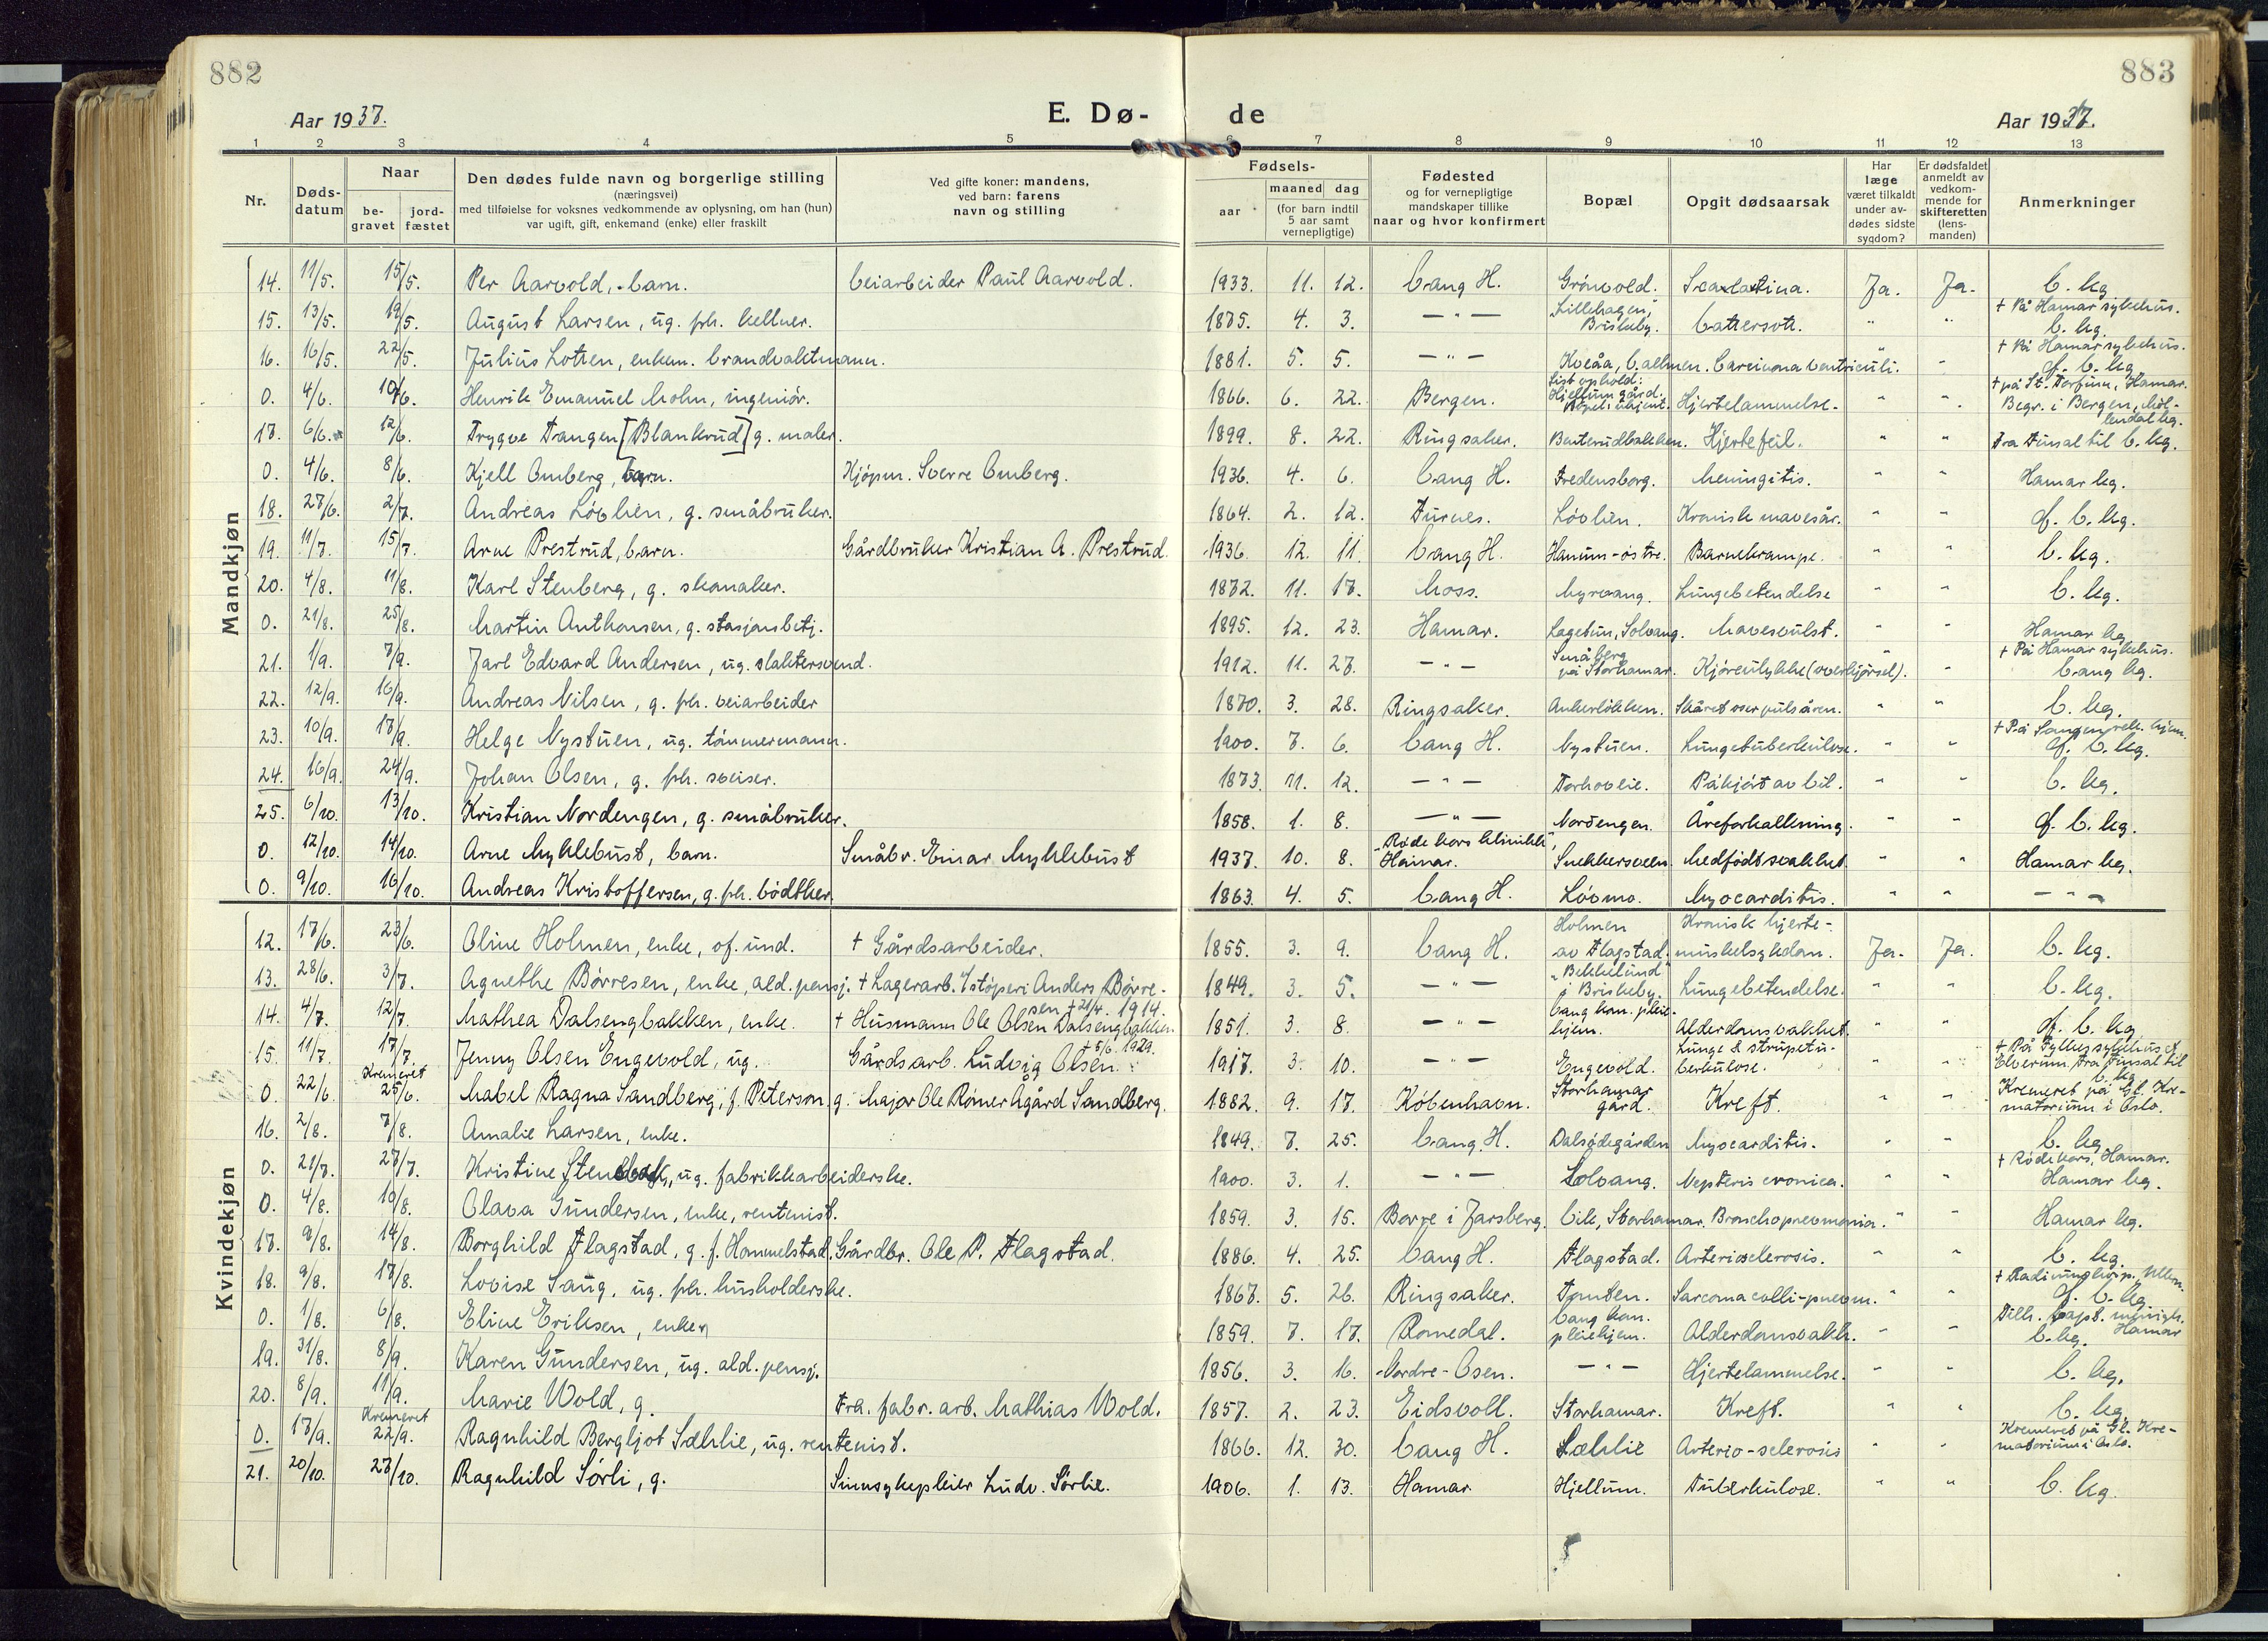 882
883
Aar 1937.
E. Dø-
de
Aar 1937.
1 2 3 4 5 6 7 8 9 10 11 12 13
Nr.
Døds-
datum
Naar
be-
gravet
jord-
fæstet
Den dødes fulde navn og borgerlige stilling
(næringsvei)
med tilføielse for voksnes vedkommende av oplysning, om han (hun)
var ugift, gift, enkemand (enke) eller fraskilt
Ved gifte koner: mandens,
ved barn: farens
navn og stilling
Fødsels-
aar
maaned dag
(for barn indtil
5 aar samt
vernepligtige)
Fødested
og for vernepligtige
mandskaper tillike
naar og hvor konfirmert
Bopæl
Opgit dødsaarsak
Har
læge
været tilkaldt
under av-
dødes sidste
sygdom?
Er dødsfaldet
anmeldt av
vedkom-
mende for
skifteretten
(lens-
manden)
Anmerkninger
Mandkjøn
14. 11/5. 15/5. Per Aarvold, barn. Veiarbeider Paul Aarvold. 1933. 11. 12. Vang H. Grönvold. Scarlatina. Ja. Ja. V. kg.
15. 13/5. 19/5. August Larsen, ug. fh. kellner. 1875. 4. 3. — " — Lillehagen, Briskeby. Vattersott. " " + På Hamar sykehus. V. kg.
16. 16/5. 22/5. Julius Lotten, enkem. brandvaktmann. 1881. 5. 5. — " — Kveåa, Vallmen. Carcinoma ventriculi. " " + På Hamar sykehus. gf. V. kg.
0. 4/6. 10/6. Henrik Emanuel Mohn, ingeniör. 1866. 6. 22. Bergen. Sist ophold: Hjellum gård. Bopel: ukjent. Hjertelammelse. " " + på St. Torfinn, Hamar. Begr. i Bergen, Möllendal kg.
17. 6/6. 12/6. Trygve Tangen [Blankrud] g. maler. 1899. 8. 22. Ringsaker. Benterudbakken. Hjertefeil. " " Fra Finsal til V. kg.
0. 4/6. 8/6. Kjell Omberg, barn. Kjöpm. Sverre Omberg. 1936. 4. 6. Vang H. Fredensborg. Meningitis. " " Hamar kg.
18. 27/6. 2/7. Andreas Lövlien, g. småbruker. 1864. 2. 12. Furnes. Lövlien. Kronisk mavesår. " " gf. V. kg.
19. 11/7. 15/7. Arne Prestrud, barn. Gårdbruker Kristian A. Prestrud. 1936. 12. 11. Vang H. Hanum-östre. Barnekrampe. " " V. kg.
20. 4/8. 11/8. Karl Stenberg, g. skomaker. 1872. 11. 17. Moss. Myrvang. Lungebetendelse " " V. kg.
0. 21/8. 25/8. Martin Anthonsen, g. stasjonsbetj. 1895. 12. 23. Hamar. Lagetun, Solvang. Mavesvulst. " " Hamar kg.
21. 1/9. 7/9. Jarl Edvard Andersen, ug. slaktersvend. 1912. 11. 27. — " — Småberg på Storhamar. Kjöreulykke (overkjörsel). " " + På Hamar sykehus. Vang kg.
22. 12/9. 16/9. Andreas Nilsen, g. fh. veiarbeider 1870. 3. 28. Ringsaker. Ankerlökken. Skåret over pulsåren. " " V. kg.
23. 10/9. 17/9. Helge Nystuen, ug. tömmermann. 1900. 7. 6. Vang H. Nystuen. Lungetuberkulose. " " + På Sangen rek. hjem. gf. V. kg.
24. 16/9. 24/9. Johan Olsen, g. fh. sveiser. 1873. 11. 12. — " — Torhovlie. Påkjört av bil. " " V. kg.
25. 6/10. 13/10. Kristian Nordengen, g. småbruker. 1858. 1. 8. — " — Nordengen. Åreforkalkning. " " gf. V. kg.
0. 12/10. 14/10. Arne Myklebust, barn. Småbr. Einar Myklebust 1937. 10. 8. "Röde kors klinikk", Hamar. Snekkersveen. Medfödt svakhet " " Hamar kg.
0. 9/10. 16/10. Andreas Kristoffersen, g. fh. bödtker. 1863. 4. 5. Vang H. Lövmo. Myocarditis. " " — " —
Kvindekjøn
12. 17/6. 23/6. Oline Holmen, enke, of. und. + Gårdsarbeider. 1855. 3. 9. Vang H. Holmen av Flagstad. Kronisk hjertemuskelsykdom. Ja. Ja. V. kg.
13. 28/6. 3/7. Agnethe Børresen, enke, ald. pensj. + Lagerarb. v/støperi Anders Børresen + 21/4. 1914. 1849. 3. 5. — " — "Bekkelund" i Briskeby. Lungebetendelse. " " V. kg.
14. 4/7. 12/7. Mathea Dalsengbakken, enke. + Husmann Ole Olsen Dalsengbakken + 5/6. 1929. 1851. 3. 8. — " — Vang kom. pleiehjem. Alderdomsvakhet. " " gf. V. kg.
15. 11/7. 17/7. Jenny Olsen Engevold, ug. Gårdsarb. Ludvig Olsen. 1917. 3. 10. — " — Engevold. Lunge & strupetuberkulose. + På Fylkessykehuset Elverum. Fra Finsal til V. kg.
0. 22/6 Kremeret 25/6. Mabel Ragna Sandberg, f. Peterson, g. Major Ole Römer Agård Sandberg. 1882. 9. 17. Köbenhavn. Storhamar gård. Kreft. " " Kremeret på Gl. Krematorium i Oslo.
16. 2/8. 7/8. Amalie Larsen, enke. 1849. 7. 25. Vang H. Dalsödegården Myocarditis. " " V. kg.
0. 21/7. 27/7. Kristine, ug. fabrikkarbeiderske. 1900. 3. 1. — " — Solvang. " " + Röde kors, Hamar. Hamar kg.
0. 4/8. 10/8. Olava Gundersen, enke, rentenist. 1859. 3. 15. Borre i Jarsberg. Vik, Storhamar. Bronchopneumonia. " " Hamar kg.
17. 9/8. 14/8. Borghild Flagstad, g. f. Hommelstad. Gårdbr. Ole P. Flagstad. 1886. 4. 25. Vang H. Flagstad. Arteriosclerosis. " " V. kg.
18. 9/8. 17/8. Lovise Saug, ug. fh. husholderske. 1867. 5. 26. Ringsaker. Tomten. Sarcoma colli-pneum. " " + Radiumhosp., Ullern. gf. V. kg.
0. 1/8. 6/8. Eline Eriksen, enke. 1859. 7. 17. Romedal. Vang kom. pleiehjem. Alderdomsvakh. " " Tilh. bapt. menigh. Hamar V. kg.
19. 31/8. 8/9. Karen Gundersen, ug. ald. pensj. 1856. 3. 16. Nordre-Osen. — " — Hjertelammelse. " " V. kg.
20. 8/9. 11/9. Marie Wold, g. Fra. fabr. arb. Mathias Wold. 1857. 2. 23. Eidsvoll. Storhamar. Kreft. " " V. kg.
0. 17/9. Kremeret 22/9. Ragnhild Bergljot Sæhlie, ug. rentenist. 1866. 12. 30. Vang H. Sæhlie Arterio-sclerosis " " Kremeret på Gl. Krematorium i Oslo.
21. 20/10. 27/10. Ragnhild Sörli, g. Sinnsykepleier Ludv. Sörlie. 1906. 1. 13. Hamar Hjellum. Tuberkulose. " " V. kg.